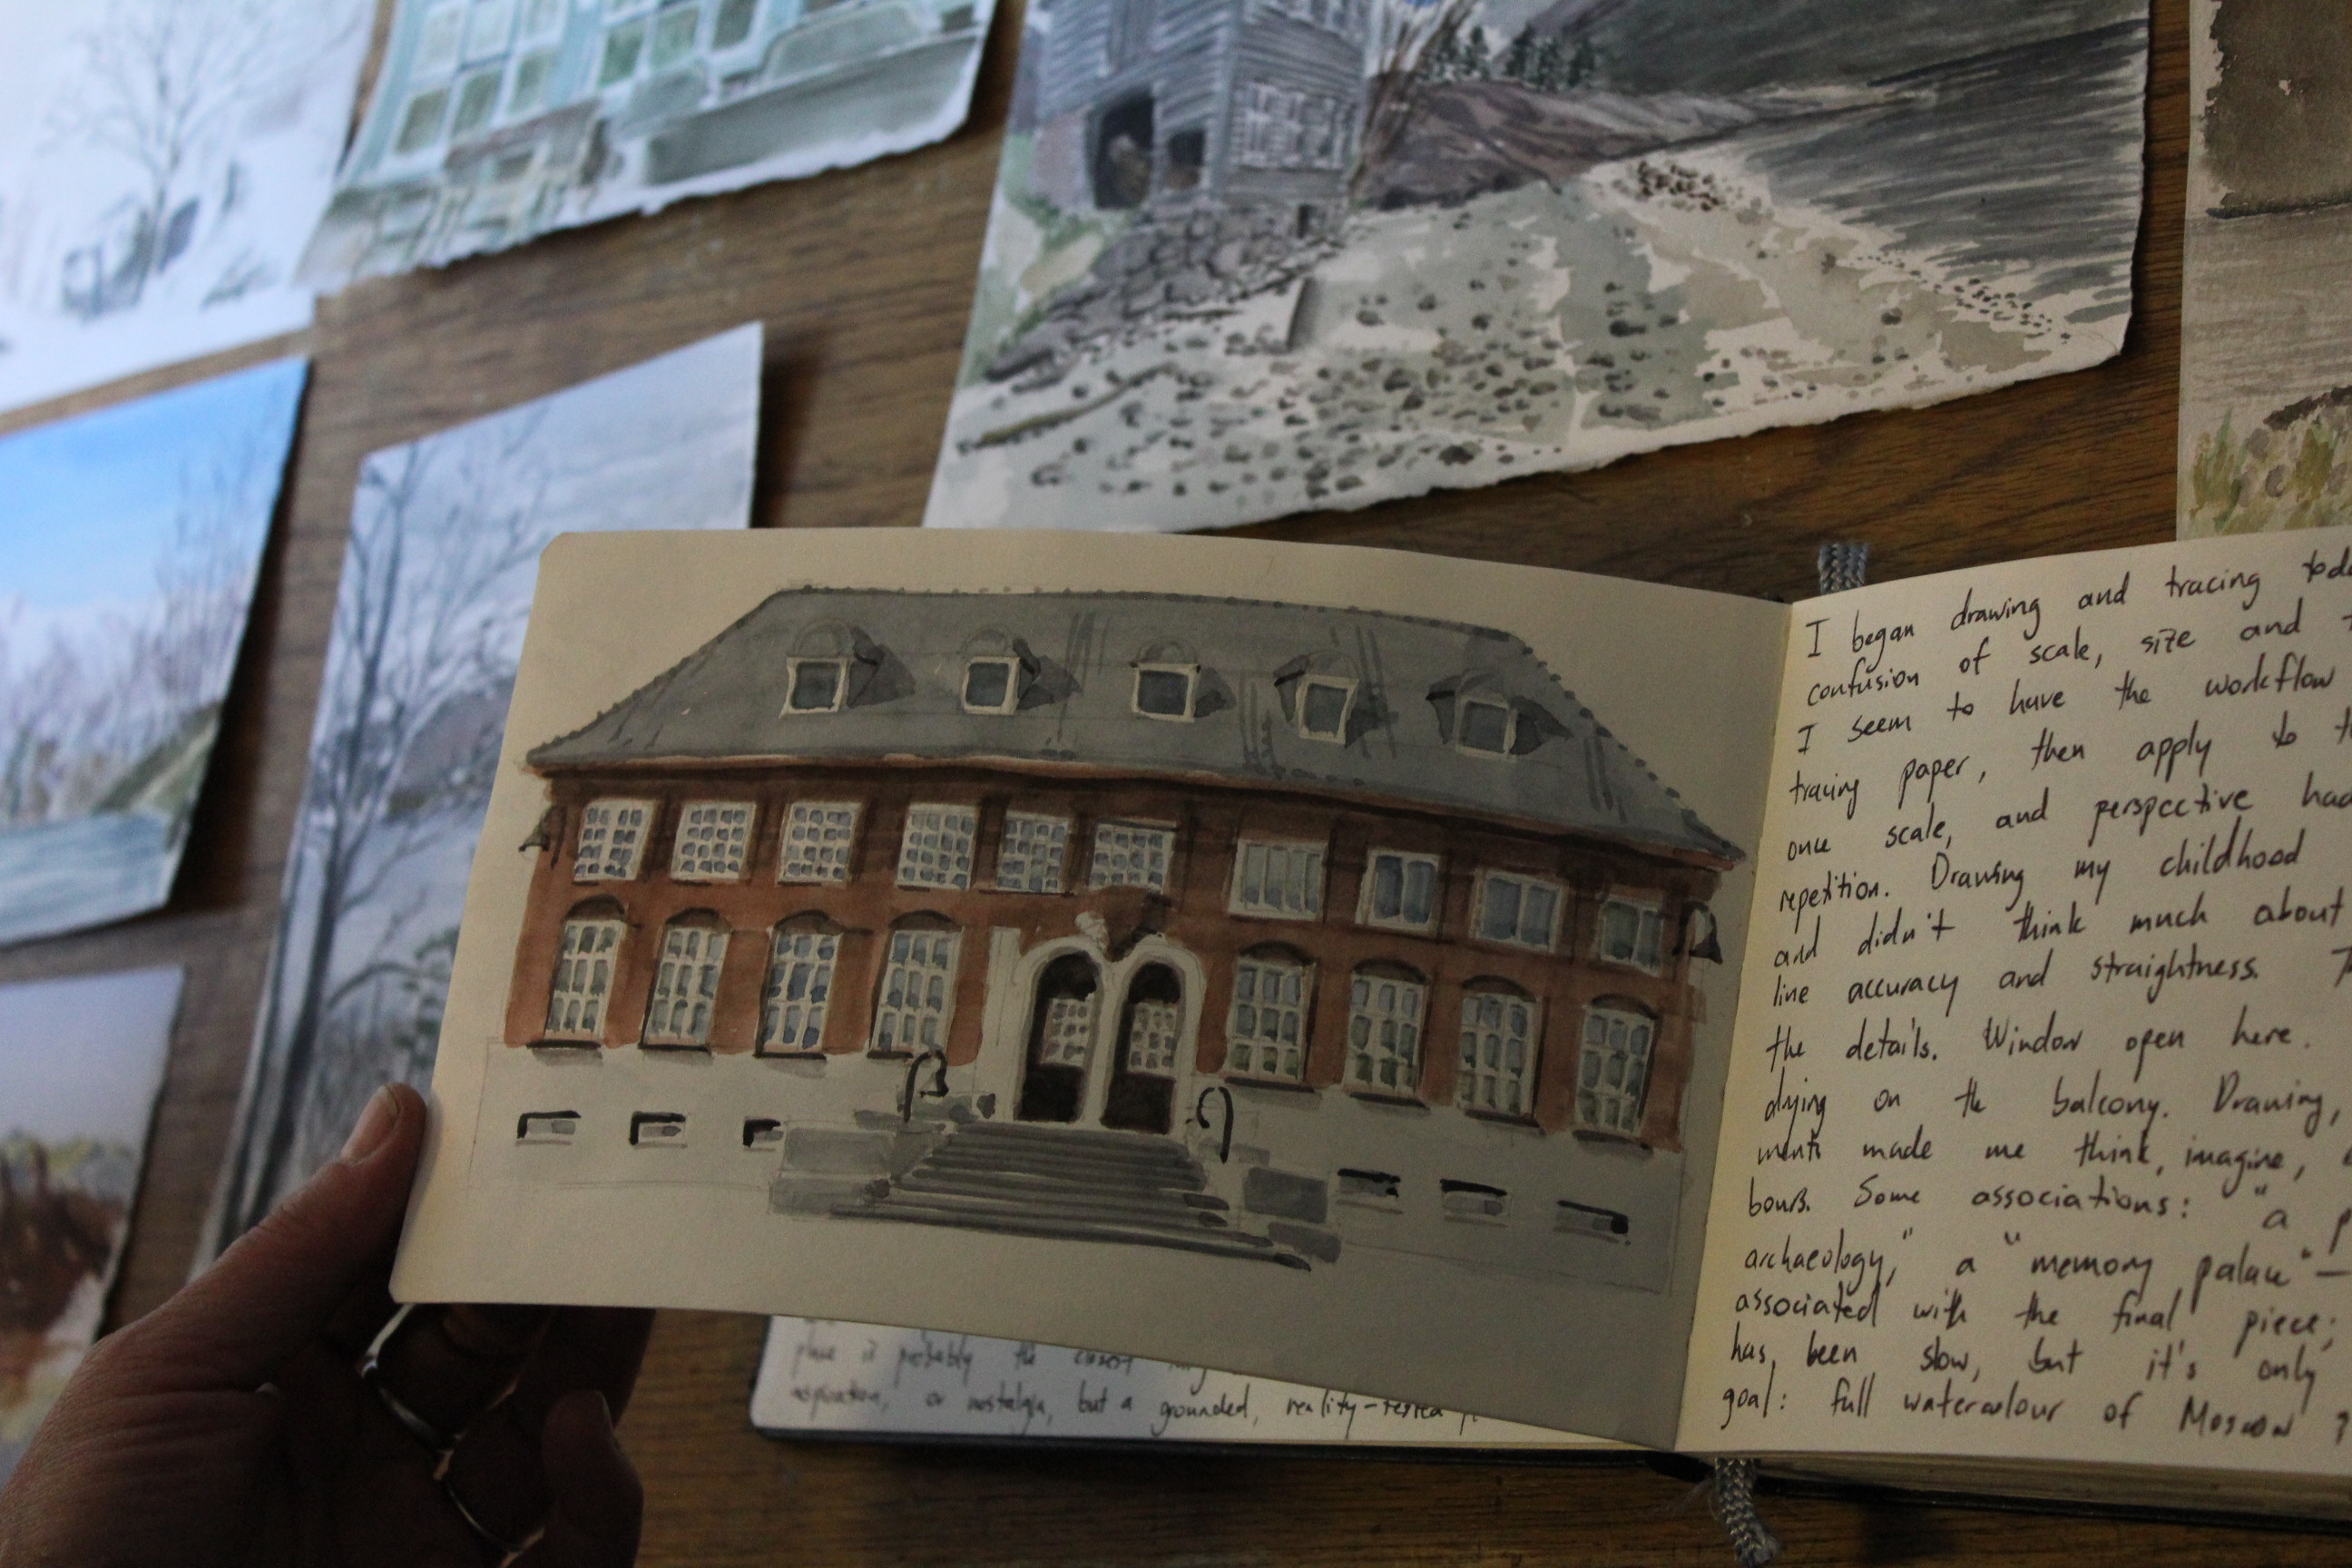 I began drawing and tracing
confusion of scale, size and
I seem to have the workflow
tracing paper, then apply to
once scale, and perspective had
repetition. Drawing my childhood
and didn't think much about
line accuracy and straightness.
the details. Window open here.
drying on the balcony. Drawing,
ments made me think, imagine,
bours. Some associations: "a
archaeology," a "memory palace" —
associated with the final piece;
has been slow, but it's only
goal: full watercolour of Moscow
place is probably the closest
aspiration, or nostalgia, but a grounded, reality-tested